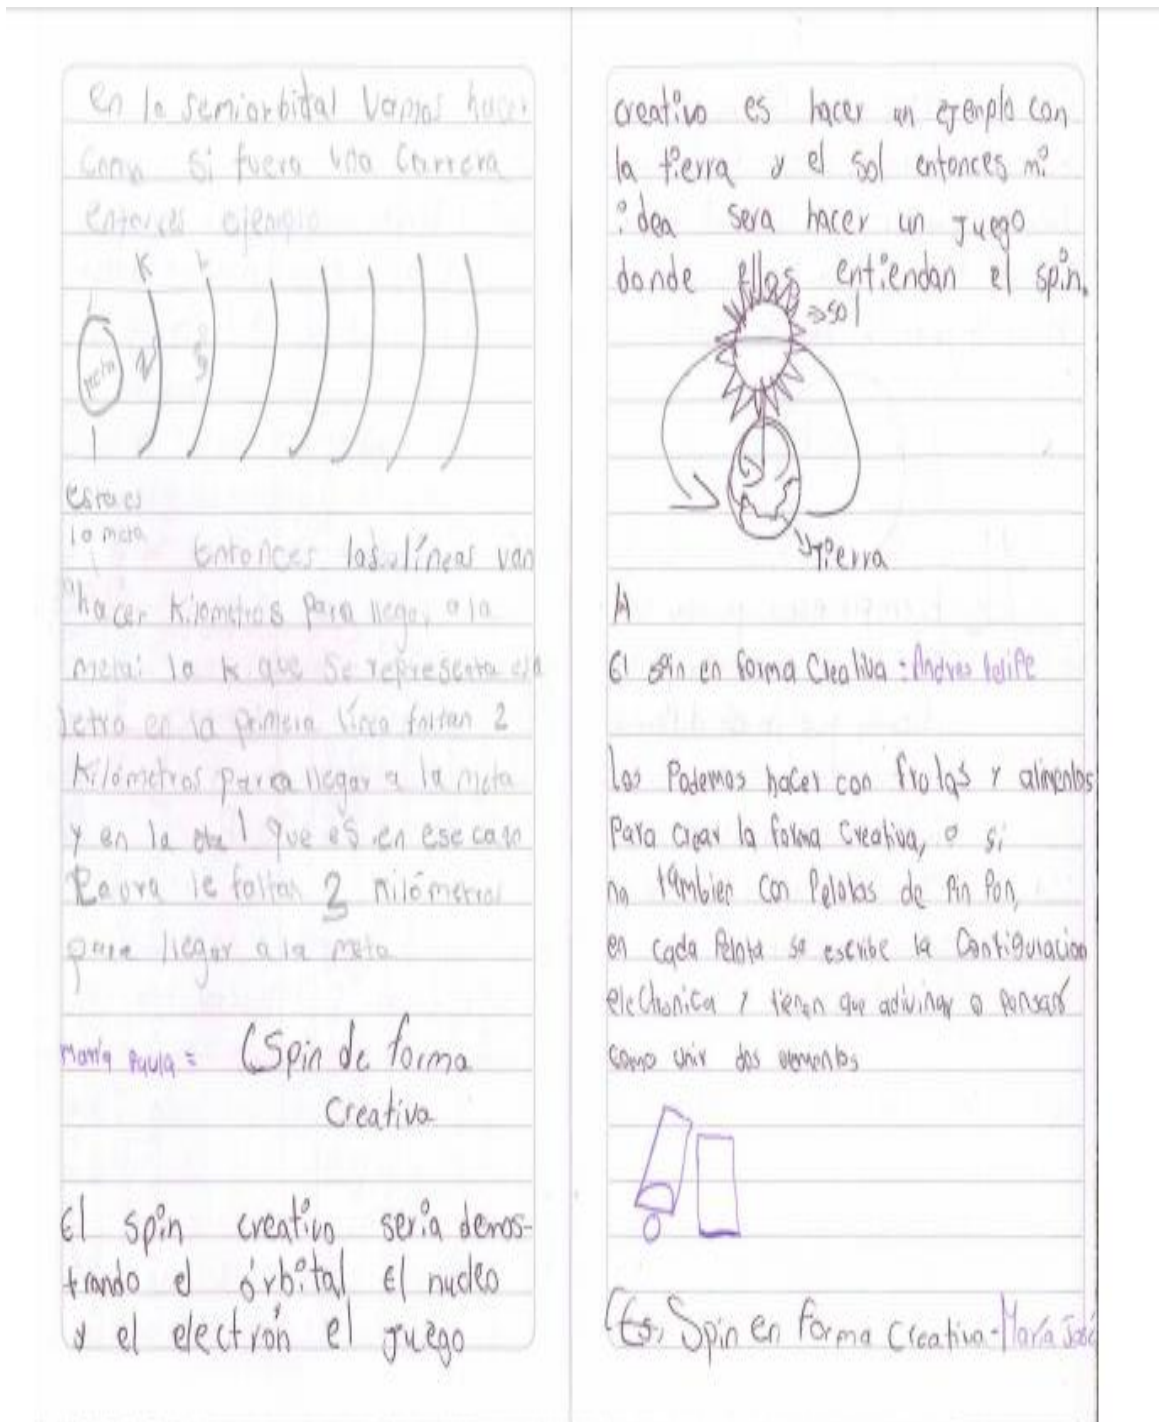 en la semiorbital vamos hacer
como si fuera una carrera
entonces ejemplo
K L
meta
esta es
la meta
Entonces las líneas van
hacer Kilometros para llegar a la
meta: la K que se representa
letra en la primera línea faltan 2
Kilómetros para llegar a la meta
y en la l que es en ese caso
le faltan 3 kilómetros
para llegar a la meta
María Paula = Spin de forma
Creativa
El spin creativo seria demos-
trando el órbital El nucleo
y el electrón el juego
creativo es hacer un ejemplo con
la tierra y el sol entonces mi
idea sera hacer un Juego
donde ellos entiendan el spin.
sol
Tierra
El spin en forma Creativa: Andres Felipe
Los Podemos hacer con y alimentos
Para crear la forma Creativa, o si
no tambien con Pelotas de Pin Pon,
en cada Pelota se escribe la Configuracion
electronica y tienen que adivinar o pensar
como unir dos elementos
Spin en forma Creativa - María José